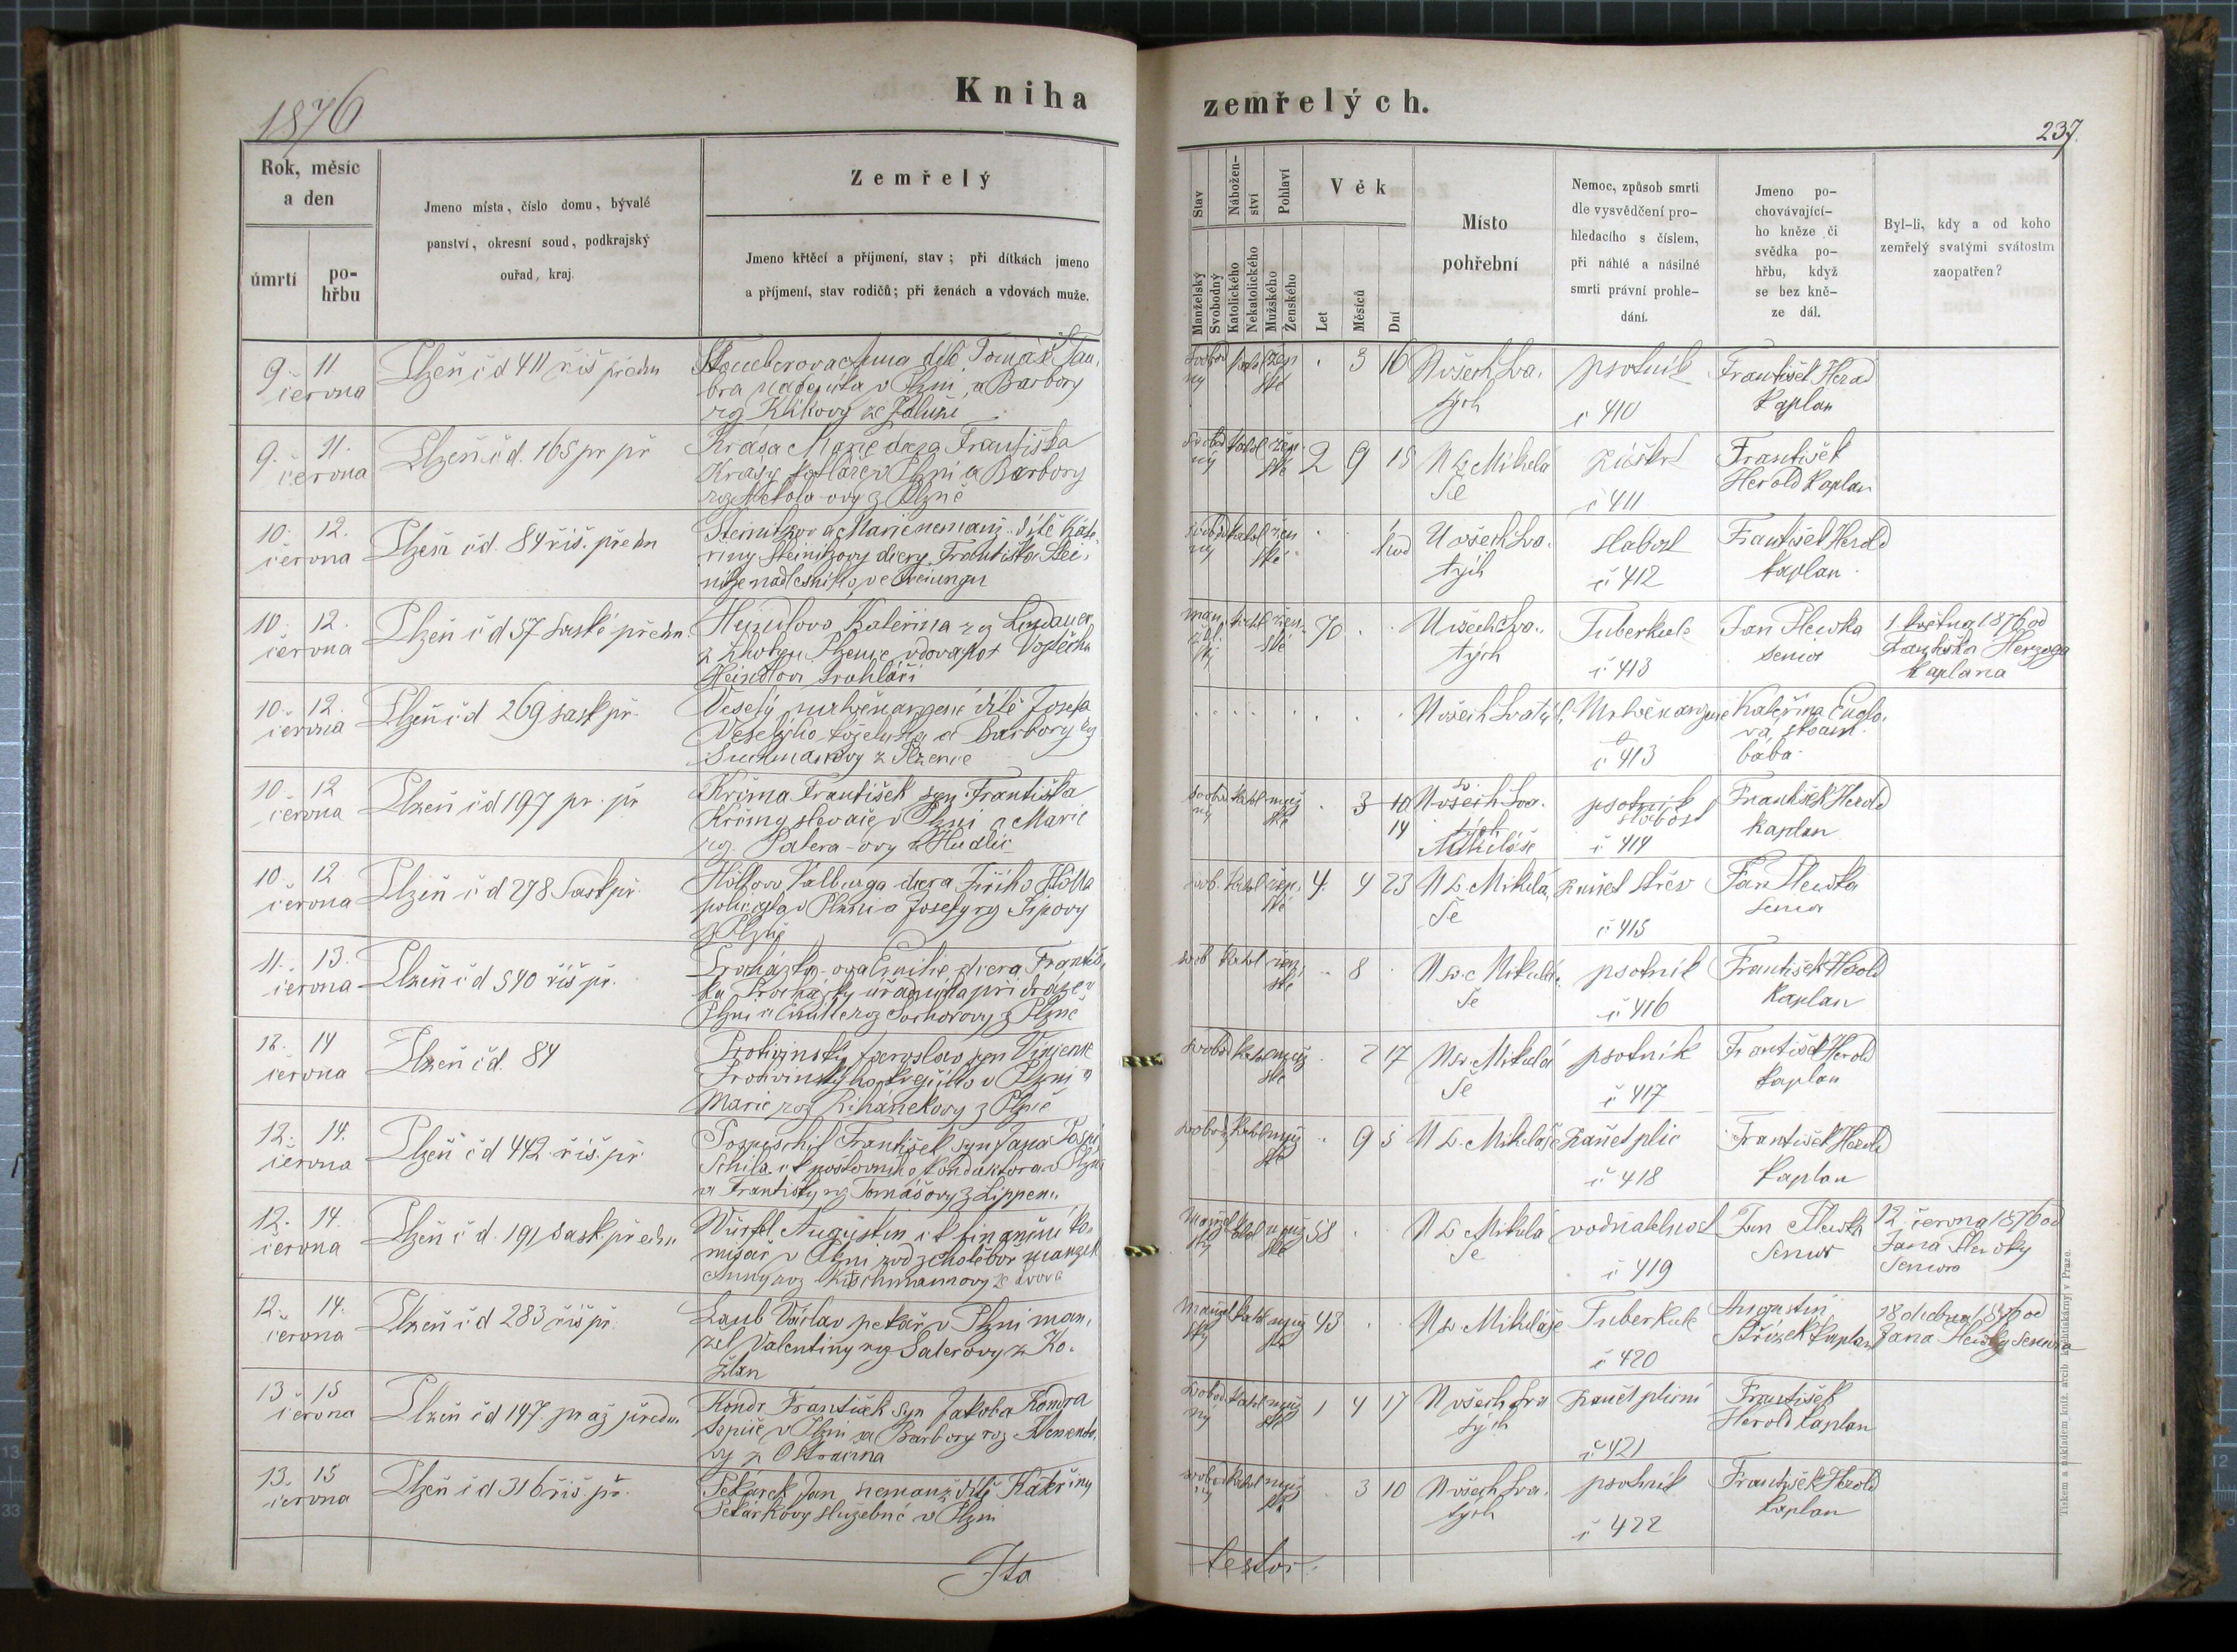 1876
Kniha
zemřelých.
237.
Rok, měsíc
a den
úmrtí
po-
hřbu
Jmeno místa, číslo domu, bývalé
panství, okresní soud, podkrajský
ouřad, kraj.
Zemřelý
Jmeno křtěcí a příjmení, stav; při dítkách jmeno
a příjmení, stav rodičů; při ženách a vdovách muže.
Stav
Manželský
Svobodný
Nábožen-
ství
Katolického
Nekatolického
Pohlaví
Mužského
Ženského
Věk
Let
Měsíců
Dní
Místo
pohřební
Nemoc, způsob smrti
dle vysvědčení pro-
hledacího s číslem,
při náhlé a násilné
smrti právní prohle-
dání.
Jmeno po-
chovávající-
ho kněze či
svědka po-
hřbu, když
se bez kně-
ze dál.
Byl-li, kdy a od koho
zemřelý svatými svátostm
zaopatřen?
9. 11.
června
Plzeň čd 411 říš předm
dítě Tomáše Tau,
v Plzni a Barbory
rz Klikovy ze
svobod
ný
kat
žen
ské
3 16
U všech Sva.
tých
psotník
č 410
František Herold
Kaplan
9. 11.
června
Plzeň č.d. 165 pr př
Krása Marie dcera Františka
Krásy kotláře v Plzni a Barbory
z Plzně
svobod
ný
katol
žen
ské
2 9 15
U Sv Mikulá
še
záškrt
č 411
František
Herold Kaplan
10. 12.
června
Plzeň čd. 84 říš. předm
Marie nemanž. dítě Kate,
řiny Steinitzovy dcery Františka Stei,
svobod
ný
katol
žen
ské
hod
U všech Sva.
tých
slabost
č 412
František Herold
kaplan
10. 12.
června
Plzeň č d 57 saské předm.
Heindlova Kateřina rz Lindauer
vdova po Vojtěchu
Heindlovi truhláři
man
žel
ský
katol
žen
ské
70
U všech Sva.,
tých
Tuberkule
č 413
Jan Hlewka
senior
1. května 1876 od
Františka Herzoga
Kaplana
10. 12.
června
Plzeň č d 269 sask př.
Veselý mrtvěnarozené dítě Josefa
Veselýho a Barbory rz
Suchmanovy z Plzenice
U všech Svatých
Mrtvěnarozené
č 413
Kateřina Englo,
vá, zkouš.
bába
10. 12
června
Plzeň č d 197 pr. př
Krčma František syn Františka
Krčmy slevače v Plzni a Marie
rz. Patera-ovy z Hudlic
svobod
ný
katol
muž
ské
3 10
14
U všech Sva.
tých
Sv.
Mikuláše
psotník
slabost
č 414
František Herold
Kaplan
10. 12
června
Plzeň č d 278 Sask př.
Valburga dcera Jiřího
policajta v Plzni a Josefy rz Šípovy
z Plzně
svob.
katol
žen.
ské
4. 4 23
U Sv. Mikulá,
še
zánět střev
č 415
Jan Hlewka
Senior
11. 13.
června
Plzeň č d 540 říš př.
Procházka-ova Emilie dcera Františ,
ka Procházky úředníka při dráze v
Plzni a Emilie roz Sochorovy z Plzně
svob
katol
žen
ské
8
U sv. Mikulá,
še
psotník
č 416
František Herold
Kaplan
12. 14
června
Plzeň č d. 84
Protivinský Jaroslav syn Vincence
Protivinskýho krejčího v Plzni a
Marie roz Řihánekovy z Plzně
svobod
katol
muž
ské
2 17
U sv. Mikulá
še
psotník
č 417
František Herold
kaplan
12. 14.
června
Plzeň č d 442 říš. př
Pospischil František syn Jana Pospi
schila c k poštovního konduktora v Plzni
a Františky rz Tomášovy z Lippen,,
svobod
katol
muž
ské
9 5
U Sv. Mikuláše
Zánět plic
č 418
František Herold
Kaplan
12. 14.
června
Plzeň č d. 191 sask předm
Würfel Augustin c k finanční ko,
misař v Plzni rod z Chotěboř manžel
Anny roz Kirschmannovy ze Lvova
manžel
ský
katol
muž
ské
58
U Sv Mikulá
še
vodnatelnost
č 419
Jan Hlewka
Senior
12. června 1876 od
Jana Hlewky
Seniora
12. 14.
června
Plzeň č d 283 říš př.
Laub Václav pekař v Plzni man,
žel Valentiny rz Saterovy z Ko,
žlan
manžel
ský
katol
muž
ské
43
U Sv Mikuláše
Tuberkule
č 420
Augustin
Střízek Kaplan
18 dubna 1876 od
Jana Hlewky Seniora
13 15
června
Plzeň č d 147. praž předm
Kondr František syn Jakoba Kondra
topiče v Plzni a Barbory roz Klemento,
vy z
svobod
ný
katol
muž
ské
1 4 17
U všech Sva
tých
zánět plicní
č 421
František
Herold Kaplan
13. 15
června
Plzeň č d 316 říš. př.
Pekárek Jan nemanž. dítě Kateřiny
Pekárkovy služebné v Plzni
svobod
ný
katol
muž
ské
3 10
U všech Sva.
tých
psotník
č 422
František Herold
Kaplan
Ita
testor.
Tiskem a nákladem kníž. arcib. knihtiskárny v Praze.